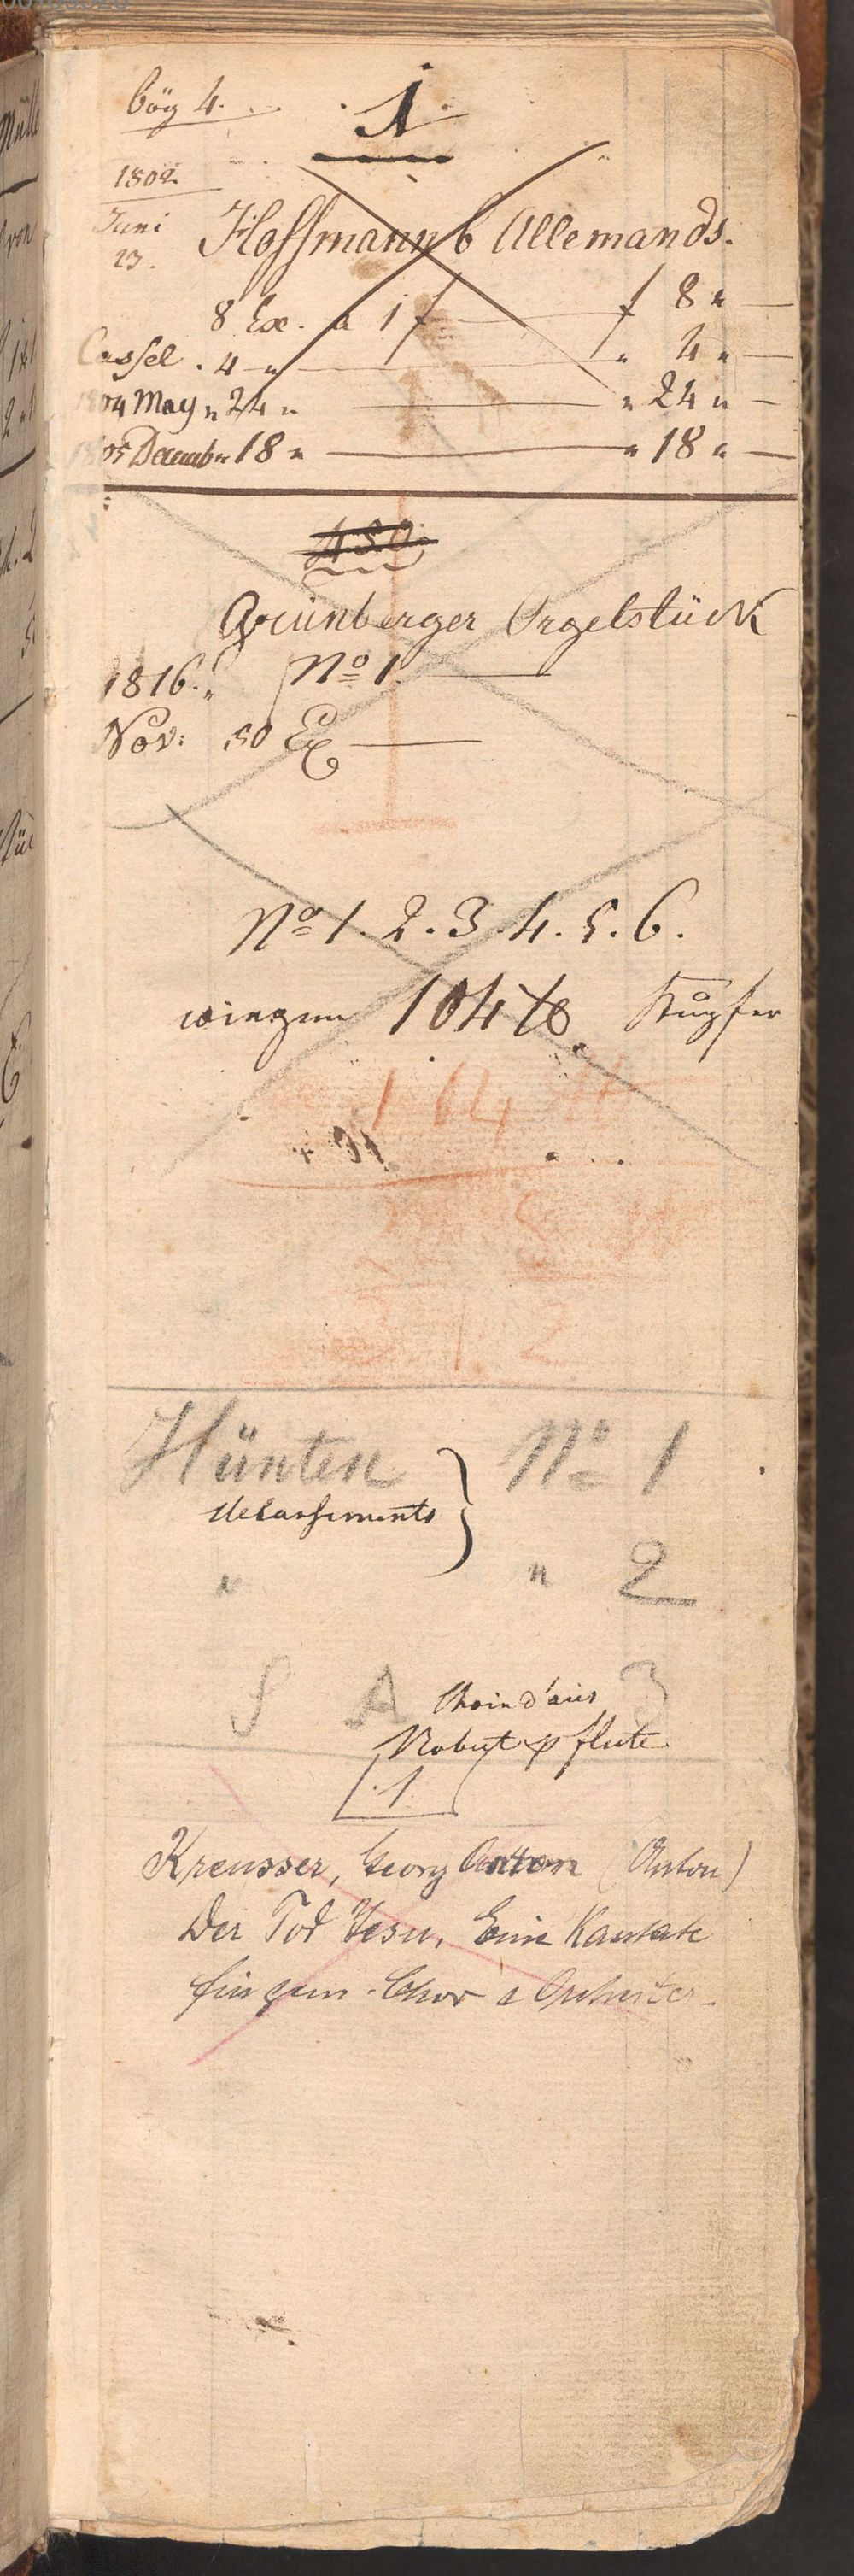 bög 4.
1
1802
Juni
23.
Hoffmann 6 Allemands.
8 Ex. a 1 f — f 8 " —
Cassel . 4 - " — " 4 " —
1804 May " 24 " — " 24 " —
1805 Decemb " 18 " — " 18 " —
450.
Grünberger Orgelstück
1816. No 1. —
Nov: 50 Ex —
No 1. 2. 3. 4. 5. 6.
wiegen 104 ℔ Kupfer
104 ℔
Hünten No 1
delassements }
" " 2
S A 3
Choix d'airs
Robert p flute
1
Kreusser, Georg Anton (Anton)
Der Tod Jesu, Eine Kantate
für gem. Chor u Orchester